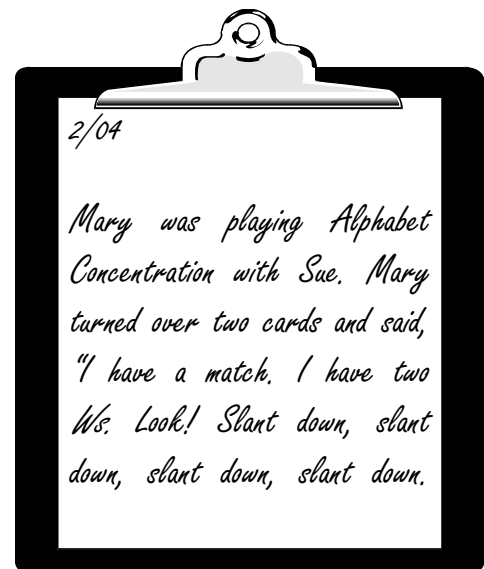 2/04
Mary was playing Alphabet
Concentration with Sue. Mary
turned over two cards and said,
"I have a match. I have two
Ws. Look! Slant down, slant
down, slant down, slant down.